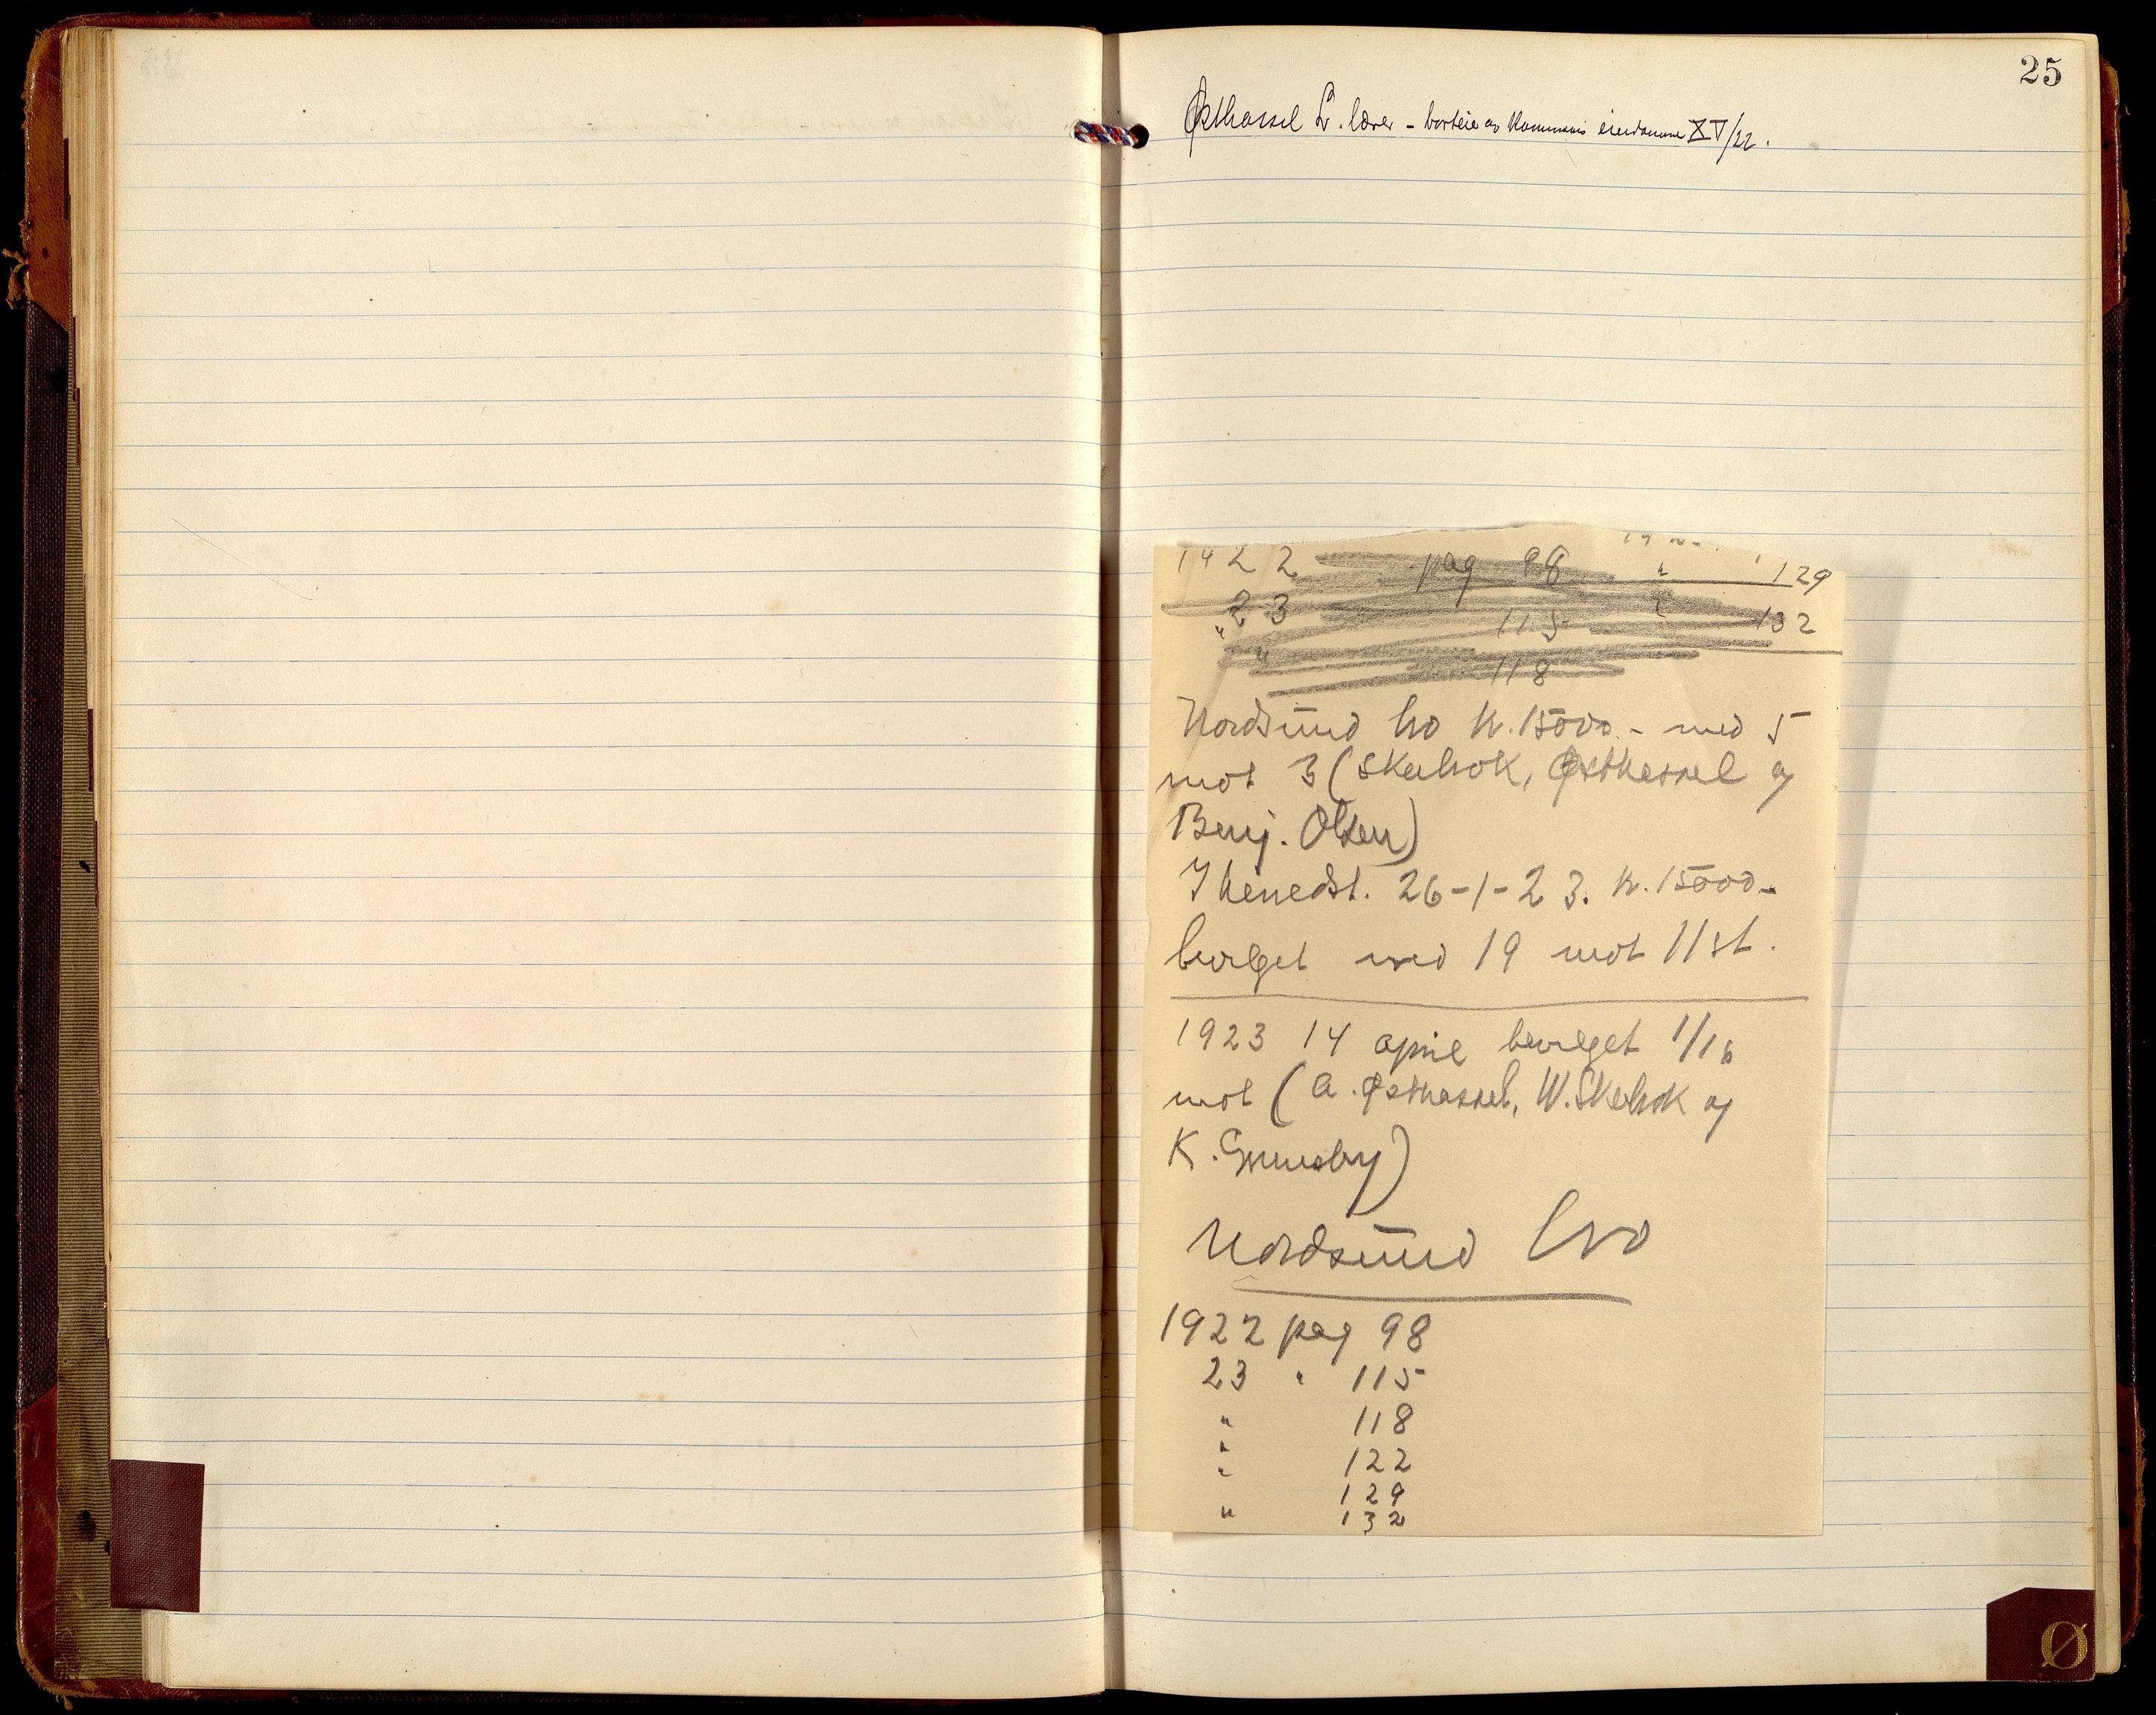 25
Østhassel L. lærer - bortleie av kommunens eiendommer XV/22.
1922 pag 98 " 129
" 23 115 " 132
" 118
Nordsund bro kr. 15000.- med 5
mot 3 (Skeibrok, Østhassel og
Benj. Olsen)
I herredst. 26-1-23. kr. 15000.-
bevilget med 19 mot 11 st.
1923 14 april bevilget
mot (A. Østhassel, W. Skeibrok og
K. Grimsby)
Nordsund bro
1922 pag 98
23 " 115
" 118
" 122
" 129
" 132
Ø